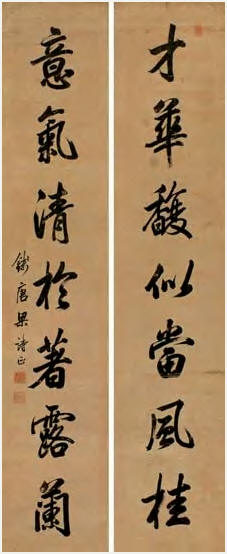 才華馥似當風桂
意氣清於著露蘭
錢唐梁詩正